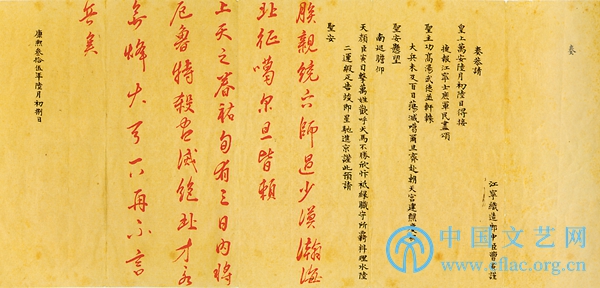 奏
江寧織造郎中臣曹寅謹
奏恭請
皇上萬安陸月初陸日得接
捷報江寧士庶軍民盡頌
聖主功高湯武德並軒轅
大兵未及百日蕩滅噶爾旦齊赴朝天宮建
聖安懸望
南巡瞻仰
天顏臣寅目擊萬姓歡呼天馬不勝欣忭祗緣職守所羈料理水陸
二運告竣即星馳進京謹此預請
聖安
朕親統六師過少漠瀚海
北征噶尔旦皆賴
上天之眷祐旬有三日內將
厄魯特殺盡滅絕北方永
無烽火天下再不言
兵矣
康熙叁拾伍年陸月初捌日
中国文艺网
www.cflac.org.cn